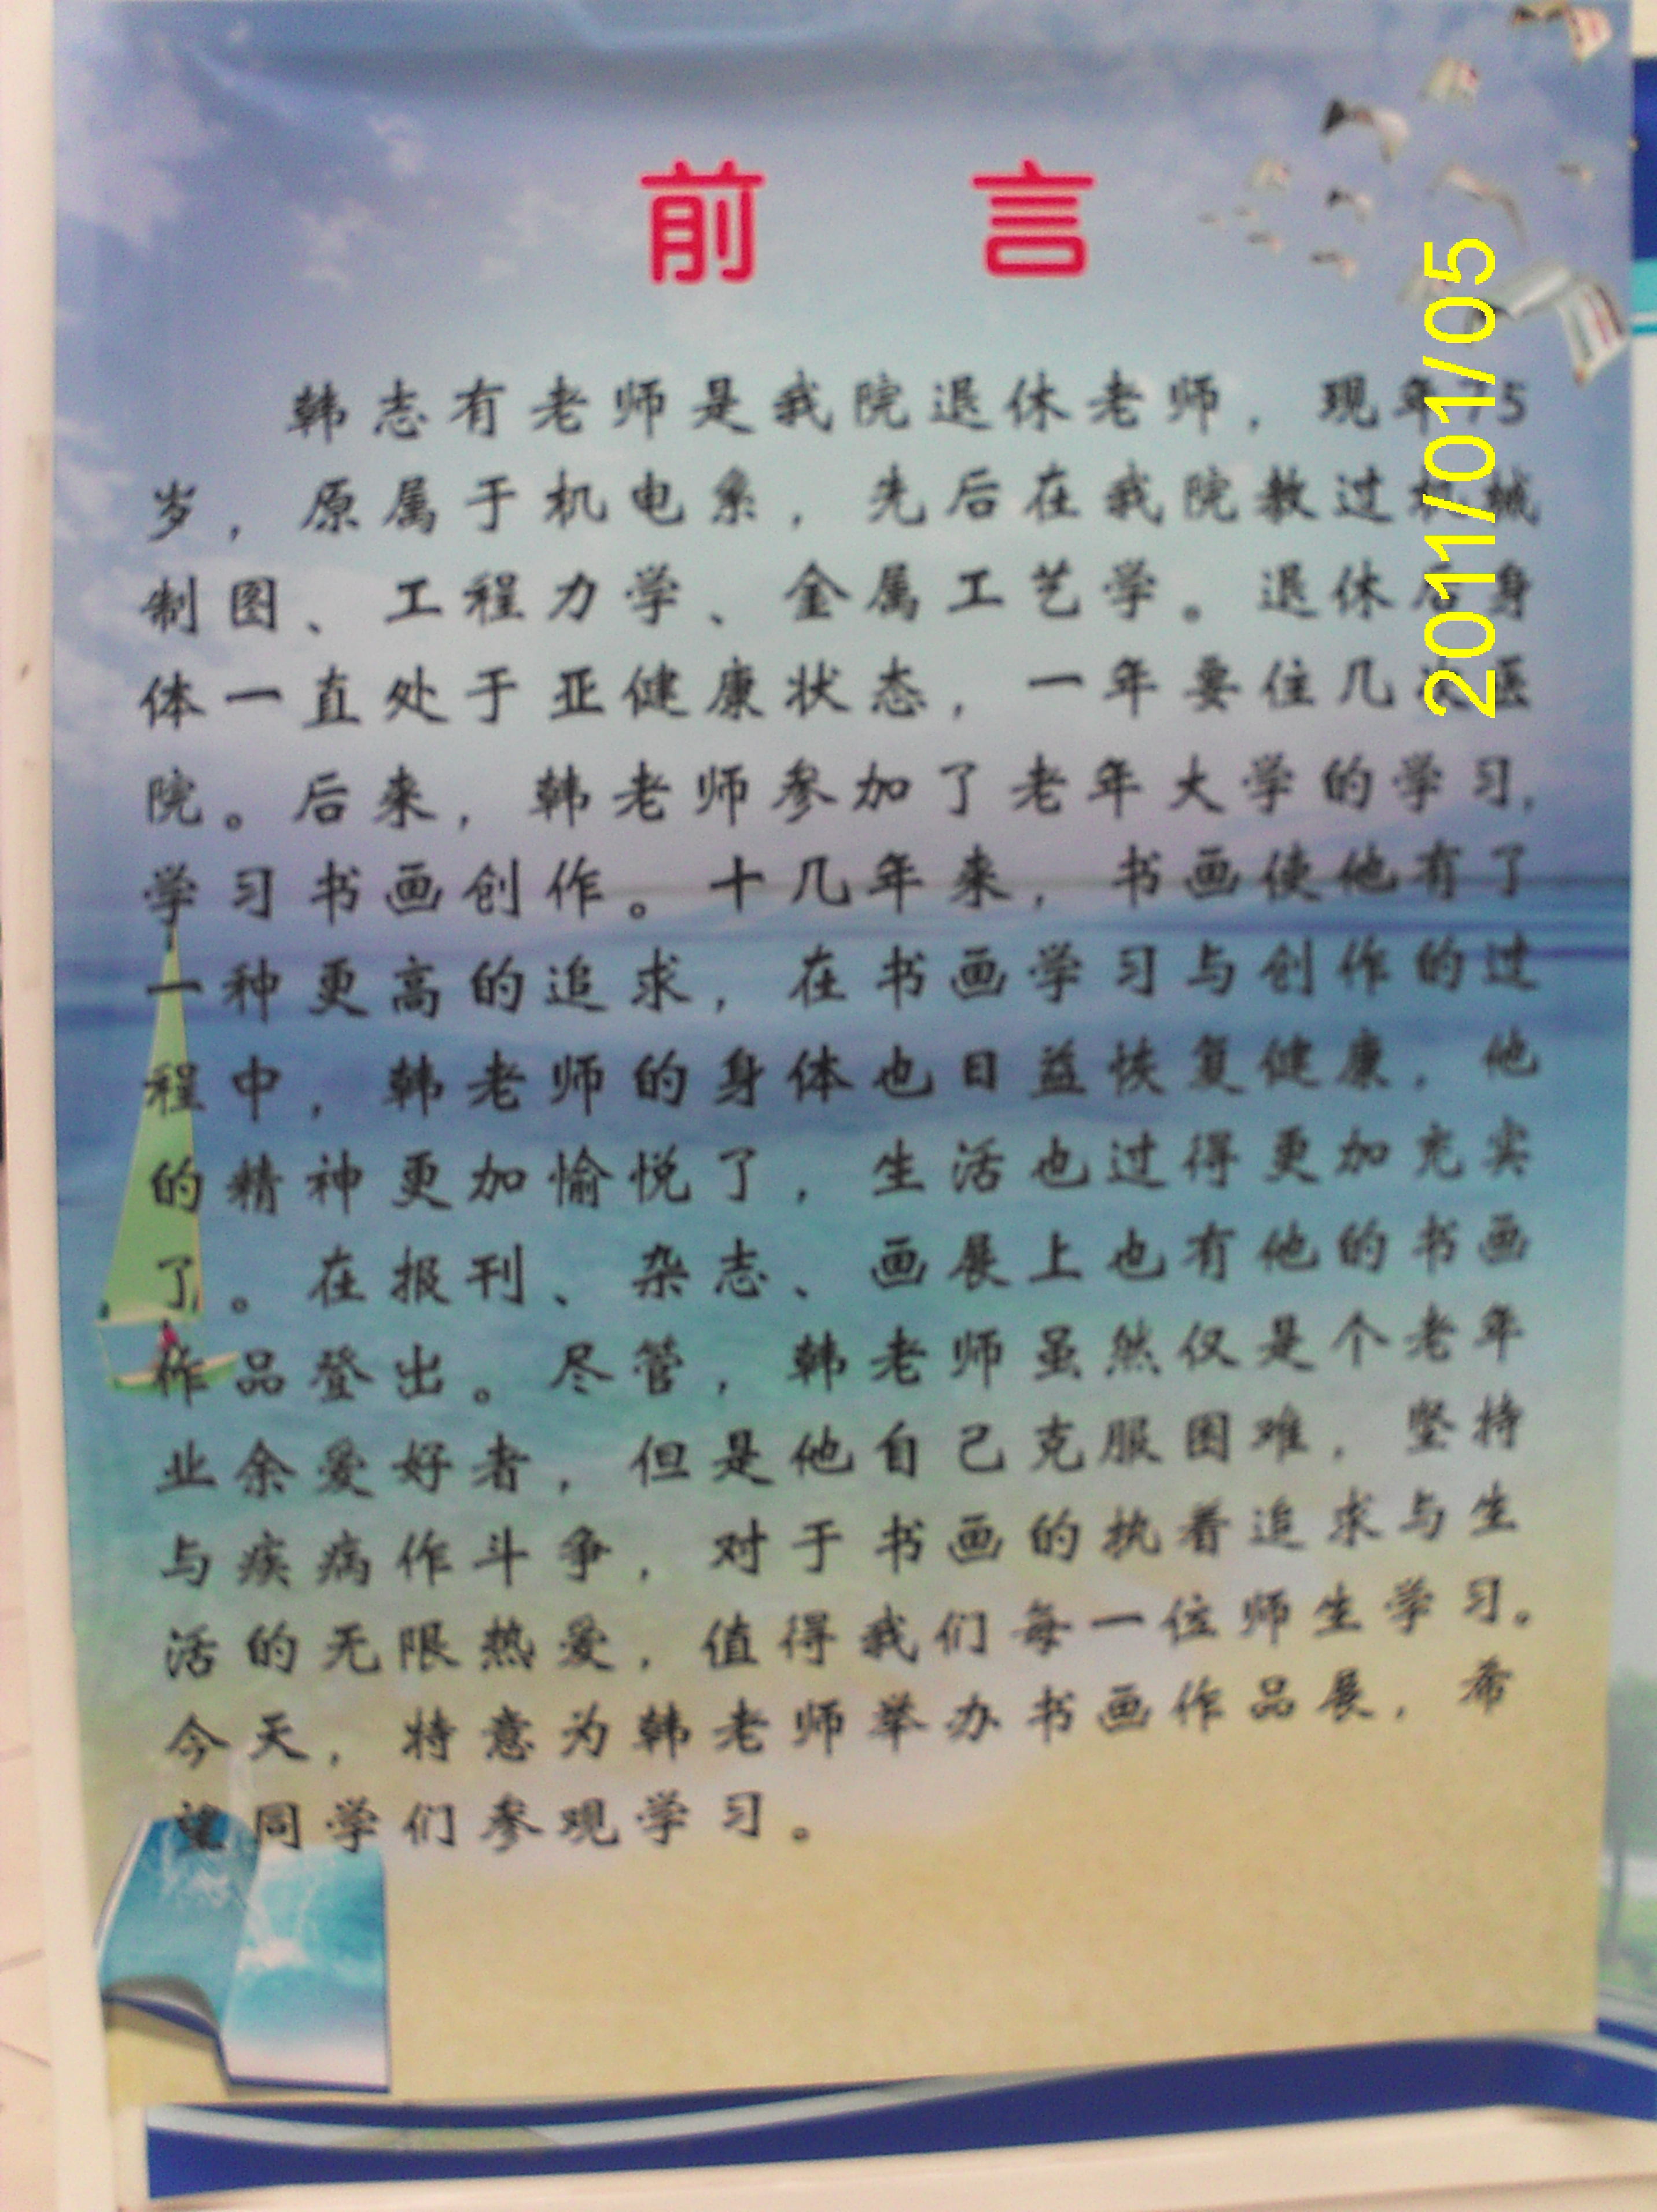 前 言
韩志有老师是我院退休老师，现年75
岁，原属于机电系，先后在我院教过机械
制图、工程力学、金属工艺学。退休后身
体一直处于亚健康状态，一年要住几次医
院。后来，韩老师参加了老年大学的学习，
学习书画创作。十几年来，书画使他有了
一种更高的追求，在书画学习与创作的过
程中，韩老师的身体也日益恢复健康，他
的精神更加愉悦了，生活也过得更加充实
了。在报刊、杂志、画展上也有他的书画
作品登出。尽管，韩老师虽然仅是个老年
业余爱好者，但是他自己克服困难，坚持
与疾病作斗争，对于书画的执着追求与生
活的无限热爱，值得我们每一位师生学习。
今天，特意为韩老师举办书画作品展，希
望同学们参观学习。
2011/01/05